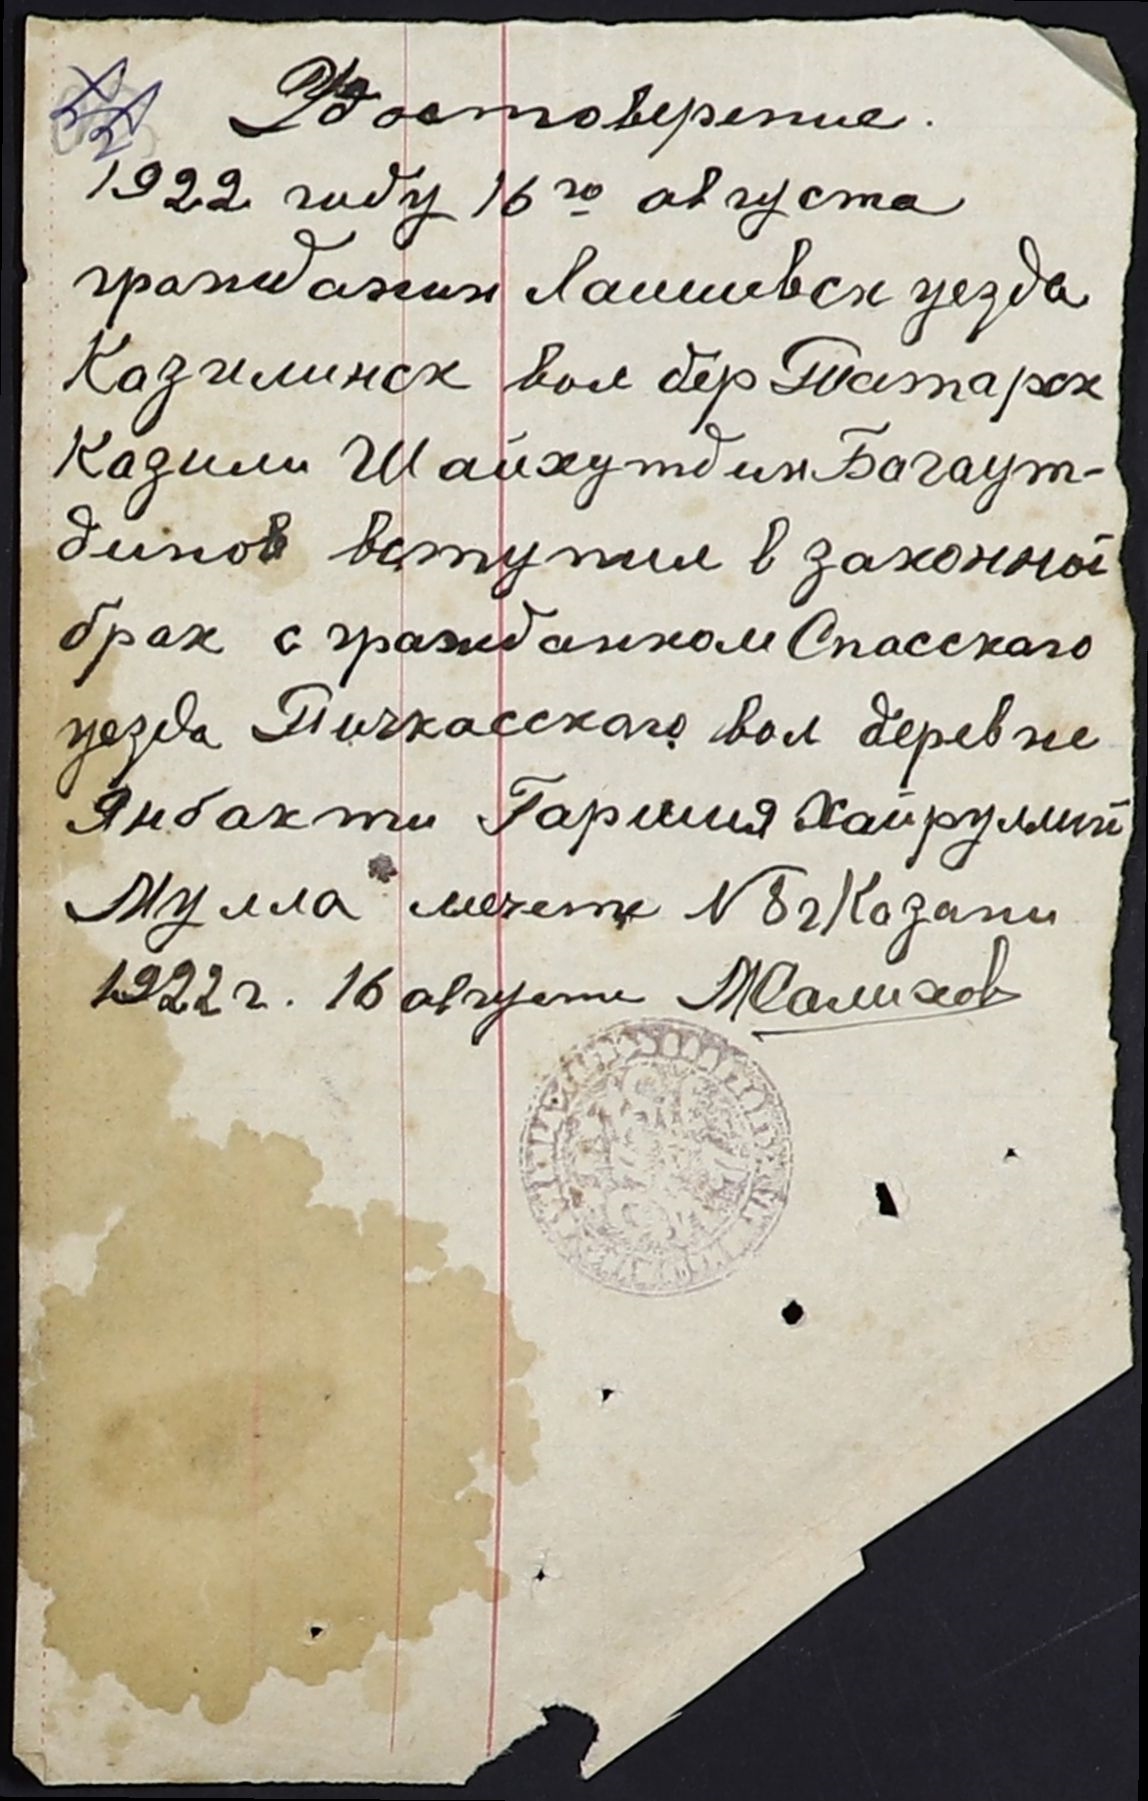 Удостоверение.
1922 году 16го августа
гражданин Лаишевск уезда
Казилинск вол дер Татарск
Казили Шайхутдин Багаут-
динов вступил в законной
брак с гражданком Спасскаго
уезда Пичкасскаго вол деревне
Янбакти Хайруллий
Мулла мечете N 8 г Казани
1922 г. 16 августа МСалихов